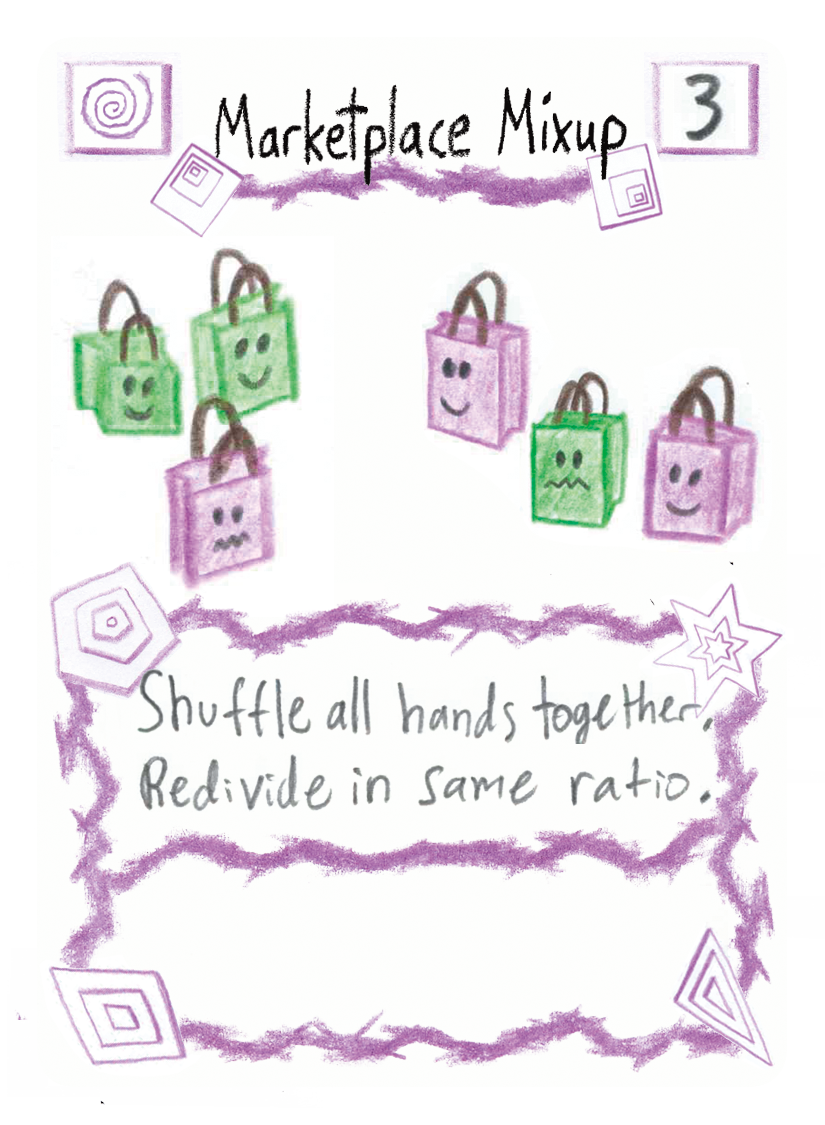 Marketplace Mixup
3
Shuffle all hands together.
Redivide in same ratio.